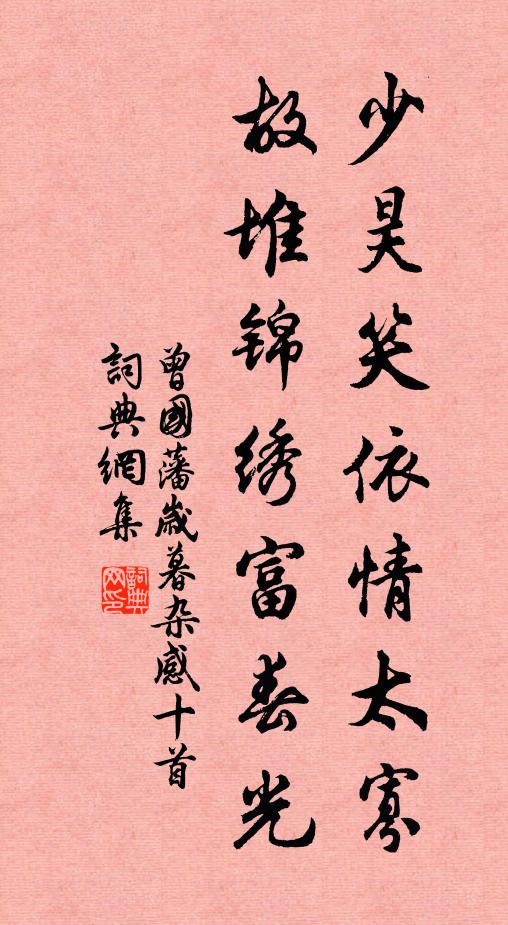 少昊笑依情太寡
故堆锦绣富春光
曾國藩歲暮杂感十首
詞典網集
詞典
网印